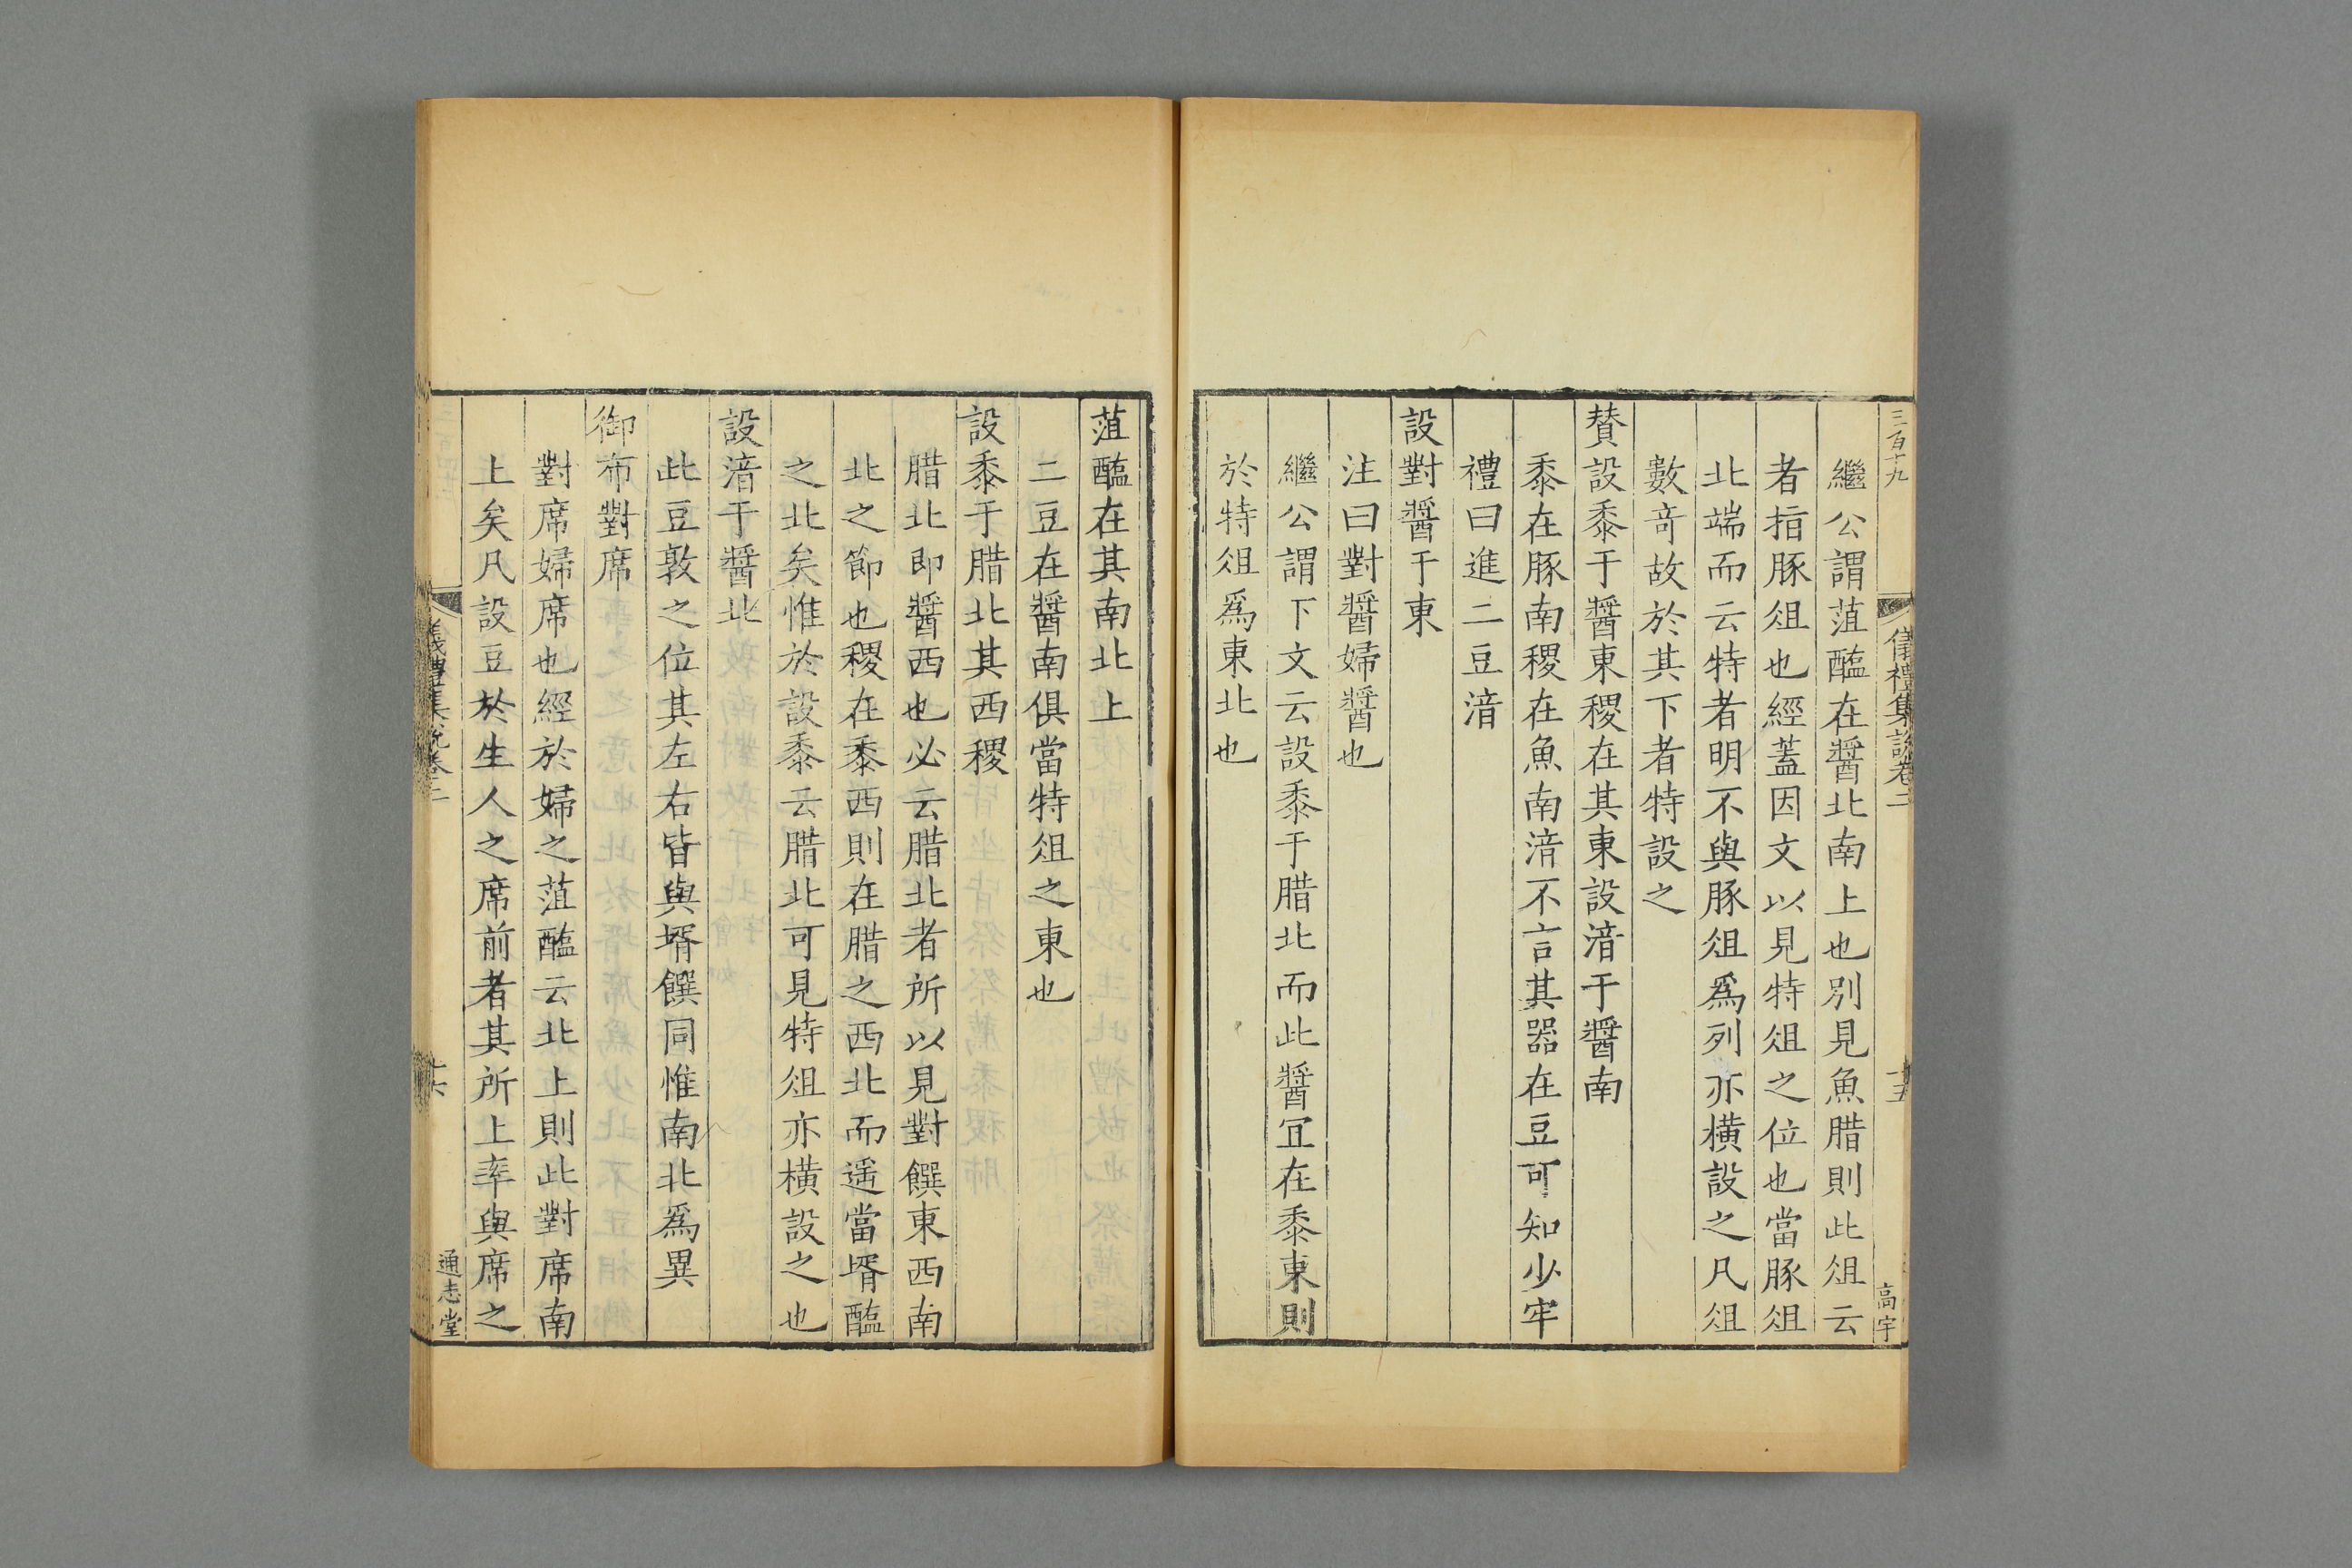 三百十九
儀禮集說卷二
十五
高宇
繼公謂菹醢在醬北南上也別見魚腊則此俎云
者指豚俎也經蓋因文以見特俎之位也當豚俎
北端而云特者明不與豚俎爲列亦橫設之凡俎
數竒故於其下者特設之
賛設黍于醬東稷在其東設湇于醬南
黍在豚南稷在魚南湇不言其器在豆可知少牢
禮曰進二豆湇
設對醬于東
注曰對醬婦醬也
繼公謂下文云設黍于腊北而此醬冝在黍東則
於特俎爲東北也
菹醢在其南北上
二豆在醬南俱當特俎之東也
設黍于腊北其西稷
腊北即醬西也必云腊北者所以見對饌東西南
北之節也稷在黍西則在腊之西北而遥當壻醢
之北矣惟於設黍云腊北可見特俎亦橫設之也
設湇于醬北
此豆敦之位其左右皆與壻饌同惟南北爲異
御布對席
對席婦席也經於婦之菹醢云北上則此對席南
上矣凡設豆於生人之席前者其所上率與席之
儀禮集說卷二
十六
通志堂